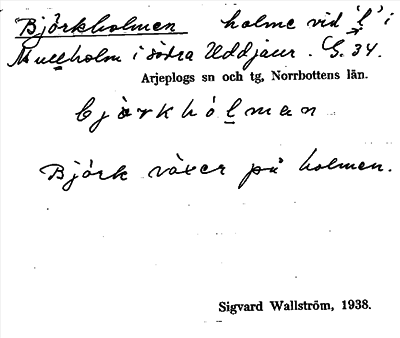 Björkholmen holme vid 'l' i
Mullholm i södra Uddjaur. G. 34.
Arjeplogs sn och tg, Norrbottens län.
bjòrkhólman
Björk växer på holmen.
Sigvard Wallström, 1938.